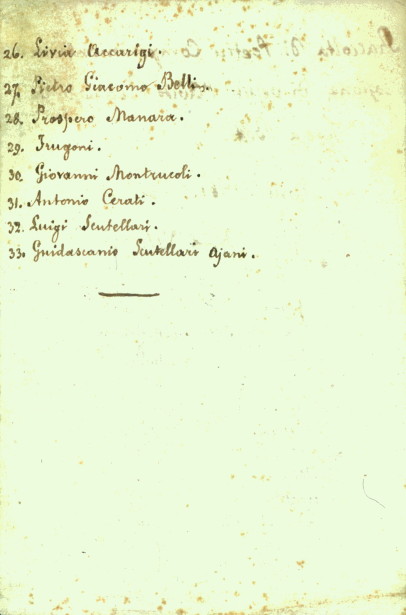 26. Livia Accarigi.
27. Pietro Giacomo Belli
28. Prospero Manara.
29. Frugoni.
30. Giovanni Montrucoli.
31. Antonio Cerati.
32. Luigi Scutellari.
33. Guidascanio Scutellari Ajani.